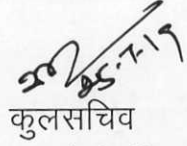 25-7-19
कुलसचिव